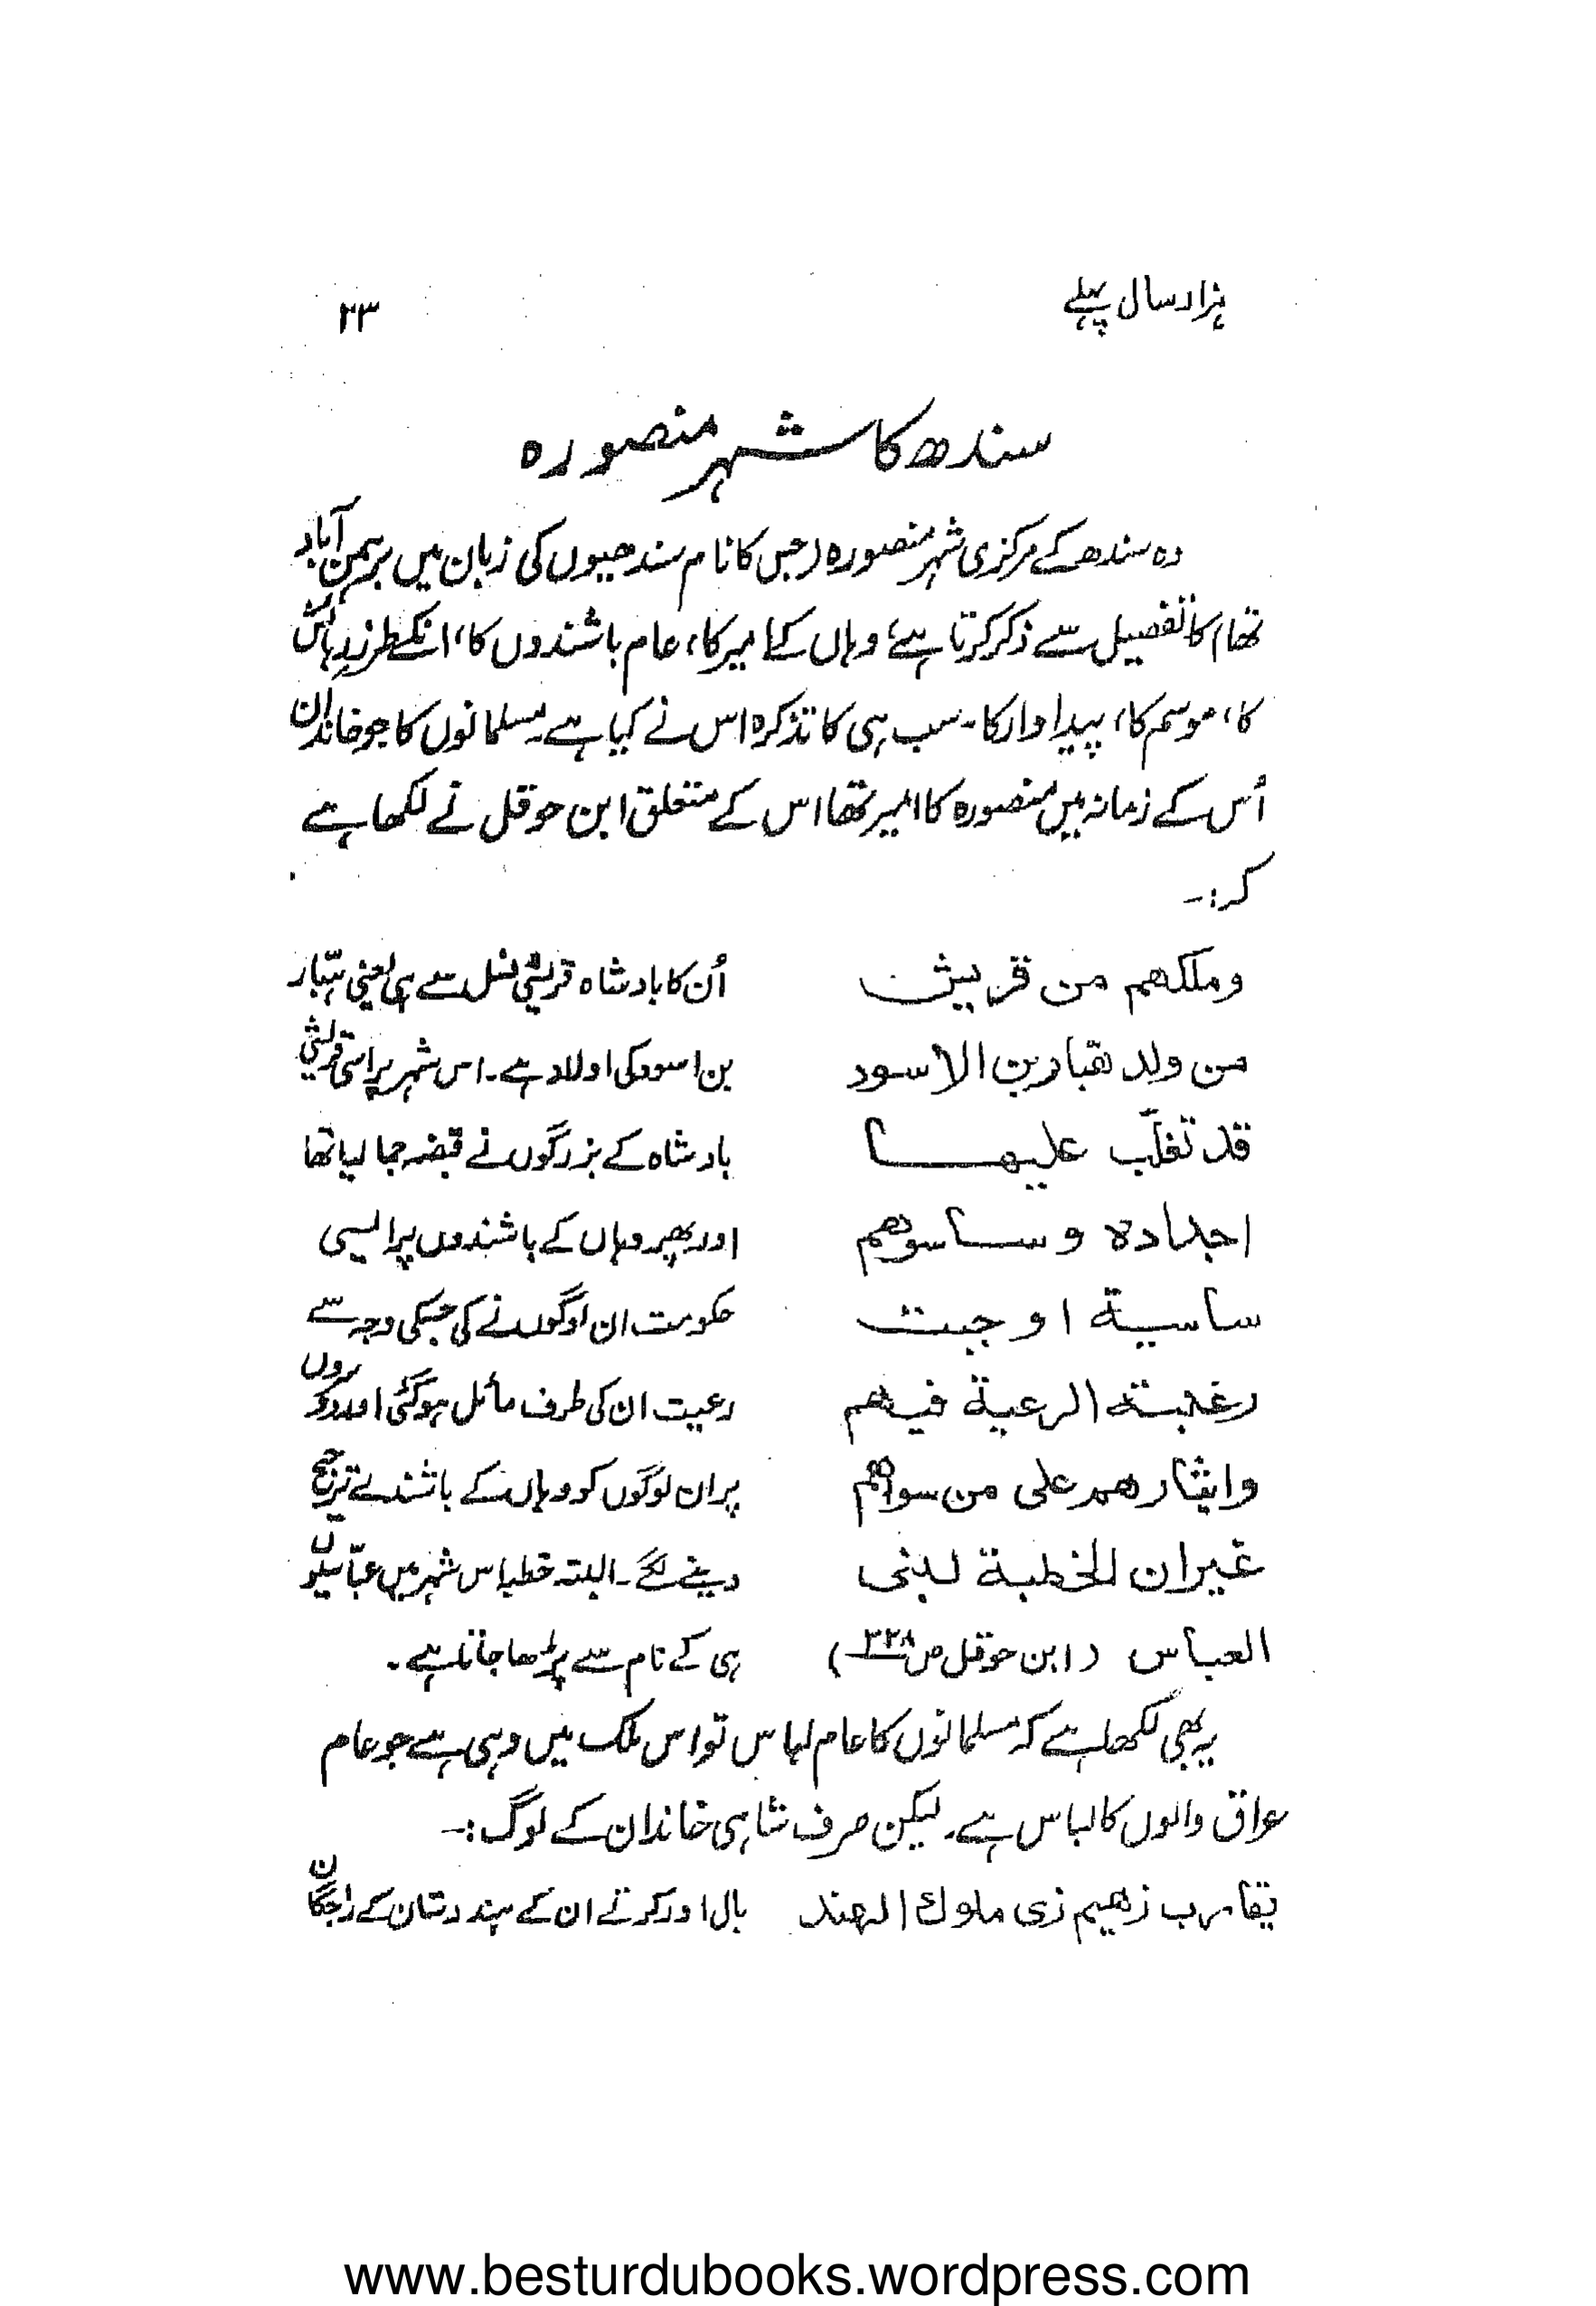 ہزار سال پہلے ۲۳
سندھ کا شہر منصورہ
وہ سندھ کے مرکزی شہر منصورہ (جس کا نام سندھیوں کی زبان میں برہمن آباد
تھا) کا تفصیل سے ذکر کرتا ہے، وہاں کے امیر کا، عام باشندوں کا، انکے طرز رہائش
کا، موسم کا، پیداوار کا۔ سب ہی کا تذکرہ اس نے کیا ہے۔ مسلمانوں کا جو خاندان
اُس کے زمانہ میں منصورہ کا امیر تھا اس کے متعلق ابن حوقل نے لکھا ہے
کہ:۔
وملکھم من قریش اُن کا بادشاہ قریشی نسل سے ہی یعنی ہبّار
من ولد ھبّار بن الاسود بن اسود کی اولاد ہے۔ اس شہر پر اسی قریشی
قد تغلّب علیھا بادشاہ کے بزرگوں نے قبضہ جما لیا تھا
اجدادہ وساسوھم اور پھر وہاں کے باشندوں پر ایسی
ساسیۃ اوجبت حکومت ان لوگوں نے کی جسکی وجہ سے
رغبتہ الرعیۃ فیھم رعیت ان کی طرف مائل ہو گئی اور دوسروں
وایثارھم علی من سواھم پر ان لوگوں کو وہاں کے باشندے ترجیح
غیر ان الخطبۃ لبنی دینے لگے۔ البتہ خطبہ اس شہر میں عبّاسیوں
العباس (ابن حوقل ص ۲۲۸) ہی کے نام سے پڑھا جاتا ہے۔
یہ بھی لکھا ہے کہ مسلمانوں کا عام لباس تو اس ملک میں وہی ہے جو عام
عراق والوں کا لباس ہے۔ لیکن صرف شاہی خاندان کے لوگ:۔
یقارب زھیم زی ملوک الھند بال اور کرتے ان کے ہندوستان کے راجگان
www.besturdubooks.wordpress.com